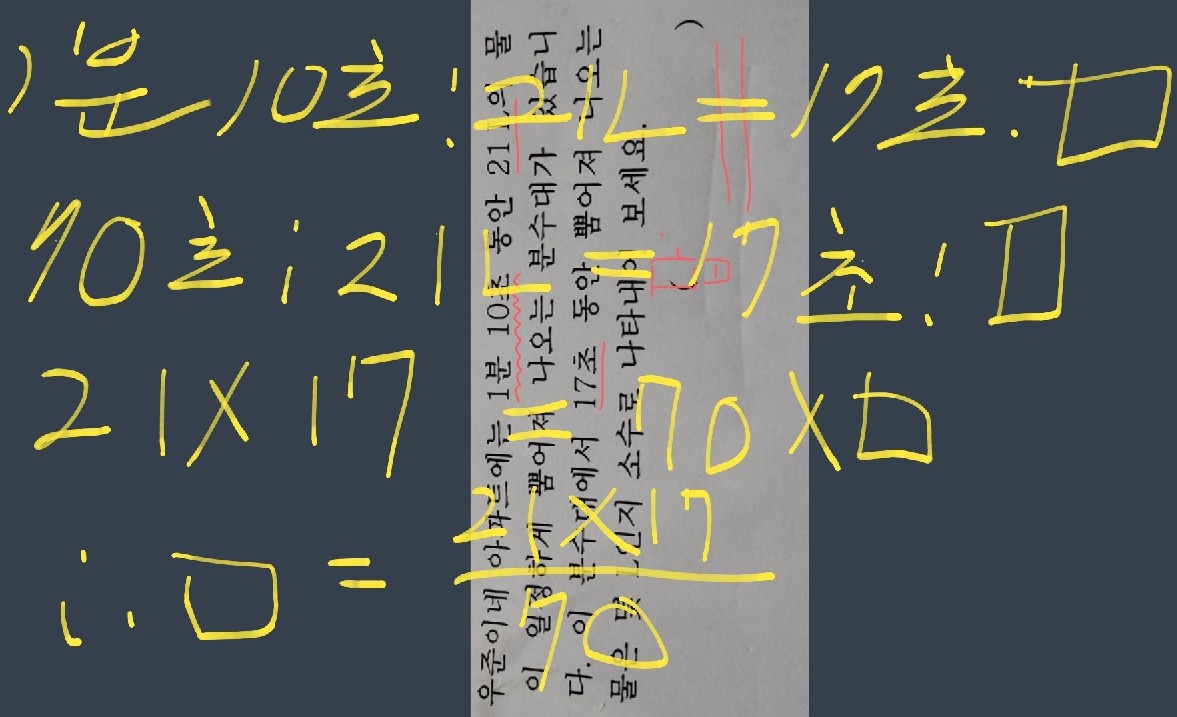 1분 10초 : 21L = 17초 : □
70초 : 21L = 17초 : □
21 × 17 = 70 × □
∴ □ = 21×17 / 70
우준이네 아파트에는 1분 10초 동안 21 L의 물
이 일정하게 뿜어져 나오는 분수대가 있습니
다. 이 분수대에서 17초 동안 뿜어져 나오는
물은 몇 L인지 소수로 나타내어 보세요.
( )